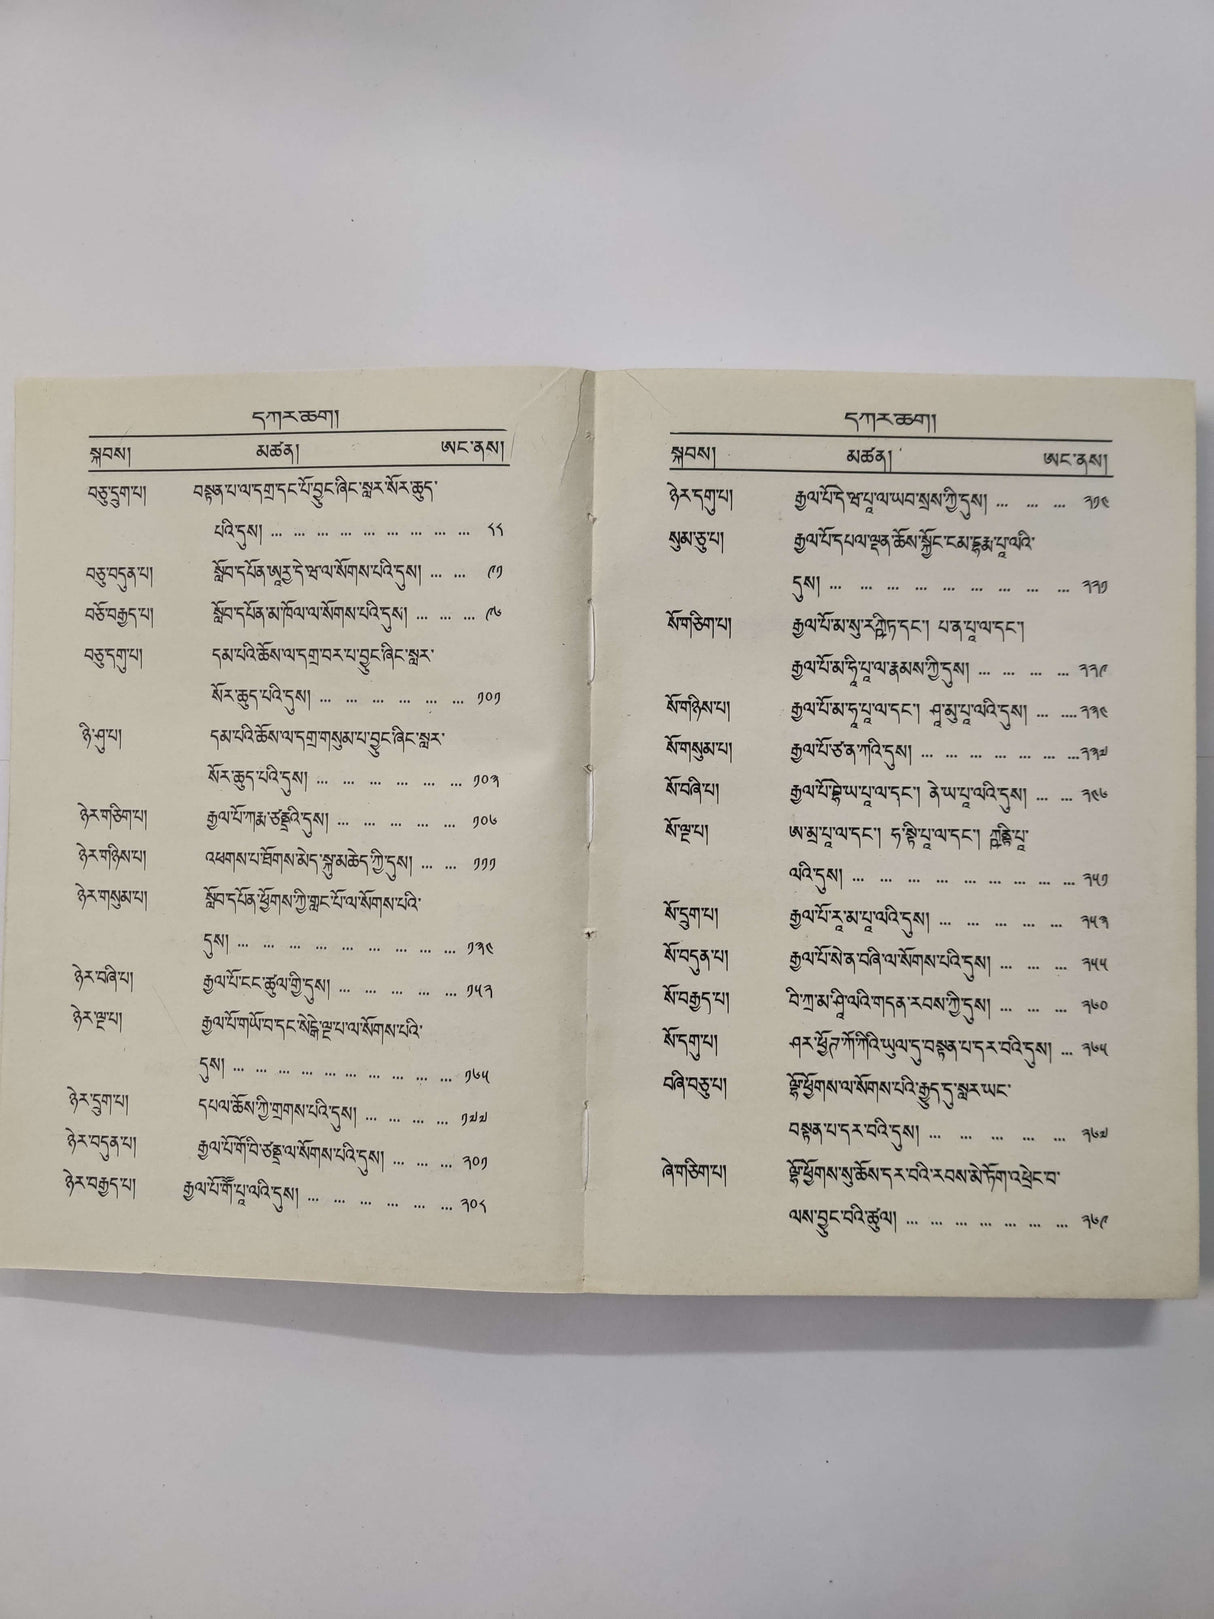 དཀར་ཆག།
སྐབས། མཚན། ཨང་ནས།
བཅུ་དྲུག་པ། བསྟན་པ་ལ་དགྲ་དང་པོ་བྱུང་ཞིང་སླར་སོར་ཆུད་
པའི་དུས། … … … … … … … … … ༨༨
བཅུ་བདུན་པ། སློབ་དཔོན་ཨཱརྱ་དེ་ཝ་ལ་སོགས་པའི་དུས། … … ༩༡
བཅོ་བརྒྱད་པ། སློབ་དཔོན་མ་ཁོལ་ལ་སོགས་པའི་དུས། … … … ༩༦
བཅུ་དགུ་པ། དམ་པའི་ཆོས་ལ་དགྲ་བར་པ་བྱུང་ཞིང་སླར་
སོར་ཆུད་པའི་དུས། … … … … … … ༡༠༡
ཉི་ཤུ་པ། དམ་པའི་ཆོས་ལ་དགྲ་གསུམ་པ་བྱུང་ཞིང་སླར་
སོར་ཆུད་པའི་དུས། … … … … … … ༡༠༣
ཉེར་གཅིག་པ། རྒྱལ་པོ་ཀརྨ་ཙནྡྲའི་དུས། … … … … … ༡༠༦
ཉེར་གཉིས་པ། འཕགས་པ་ཐོགས་མེད་སྐུ་མཆེད་ཀྱི་དུས། … … ༡༡༡
ཉེར་གསུམ་པ། སློབ་དཔོན་ཕྱོགས་ཀྱི་གླང་པོ་ལ་སོགས་པའི་
དུས། … … … … … … … … … ༡༣༤
ཉེར་བཞི་པ། རྒྱལ་པོ་ངང་ཚུལ་གྱི་དུས། … … … … … ༡༥༢
ཉེར་ལྔ་པ། རྒྱལ་པོ་གཡོ་བ་དང་སེངྒེ་ལྔ་པ་ལ་སོགས་པའི་
དུས། … … … … … … … … … … ༡༦༥
ཉེར་དྲུག་པ། དཔལ་ཆོས་ཀྱི་གྲགས་པའི་དུས། … … … … ༡༧༧
ཉེར་བདུན་པ། རྒྱལ་པོ་གོ་བི་ཙནྡྲ་ལ་སོགས་པའི་དུས། … … … ༢༠༡
ཉེར་བརྒྱད་པ། རྒྱལ་པོ་གོ་པཱ་ལའི་དུས། … … … … … … ༢༠༨
དཀར་ཆག།
སྐབས། མཚན། ཨང་ནས།
ཉེར་དགུ་པ། རྒྱལ་པོ་དེ་ཝ་པཱ་ལ་ཡབ་སྲས་ཀྱི་དུས། … … … ༢༡༤
སུམ་ཅུ་པ། རྒྱལ་པོ་དཔལ་ལྡན་ཆོས་སྐྱོང་ངམ་དྷརྨ་པཱ་ལའི་
དུས། … … … … … … … … … ༢༢༡
སོ་གཅིག་པ། རྒྱལ་པོ་མ་སུ་རཀྵི་ཏ་དང་། པ་ན་པཱ་ལ་དང་།
རྒྱལ་པོ་མ་ཧཱི་པཱ་ལ་རྣམས་ཀྱི་དུས། … … … … ༢༢༩
སོ་གཉིས་པ། རྒྱལ་པོ་མ་ཧཱ་པཱ་ལ་དང་། ཤཱ་མུ་པཱ་ལའི་དུས། … …. ༢༣༤
སོ་གསུམ་པ། རྒྱལ་པོ་ཙ་ན་ཀའི་དུས། … … … … … … … ༢༣༧
སོ་བཞི་པ། རྒྱལ་པོ་བྷེ་ཡ་པཱ་ལ་དང་། ནེ་ཡ་པཱ་ལའི་དུས། … … ༢༤༦
སོ་ལྔ་པ། ཨ་མྲ་པཱ་ལ་དང་། ཧ་སྟི་པཱ་ལ་དང་། ཀྵནྟི་པཱ་
ལའི་དུས། … … … … … … … … … … ༢༥༡
སོ་དྲུག་པ། རྒྱལ་པོ་རཱ་མ་པཱ་ལའི་དུས། … … … … … ༢༥༣
སོ་བདུན་པ། རྒྱལ་པོ་སེ་ན་བཞི་ལ་སོགས་པའི་དུས། … … … ༢༥༥
སོ་བརྒྱད་པ། བི་ཀྲ་མ་ཤཱི་ལའི་གདན་རབས་ཀྱི་དུས། … … … ༢༦༠
སོ་དགུ་པ། ཤར་ཕྱོགས་ཀོ་ཀིའི་ཡུལ་དུ་བསྟན་པ་དར་བའི་དུས། … ༢༦༥
བཞི་བཅུ་པ། ལྷོ་ཕྱོགས་ལ་སོགས་པའི་རྒྱུད་དུ་སླར་ཡང་
བསྟན་པ་དར་བའི་དུས། … … … … … ༢༦༧
ཞེ་གཅིག་པ། ལྷོ་ཕྱོགས་སུ་ཆོས་དར་བའི་རབས་མེ་ཏོག་འཕྲེང་བ་
ལས་བྱུང་བའི་ཚུལ། … … … … … … … ༢༦༩